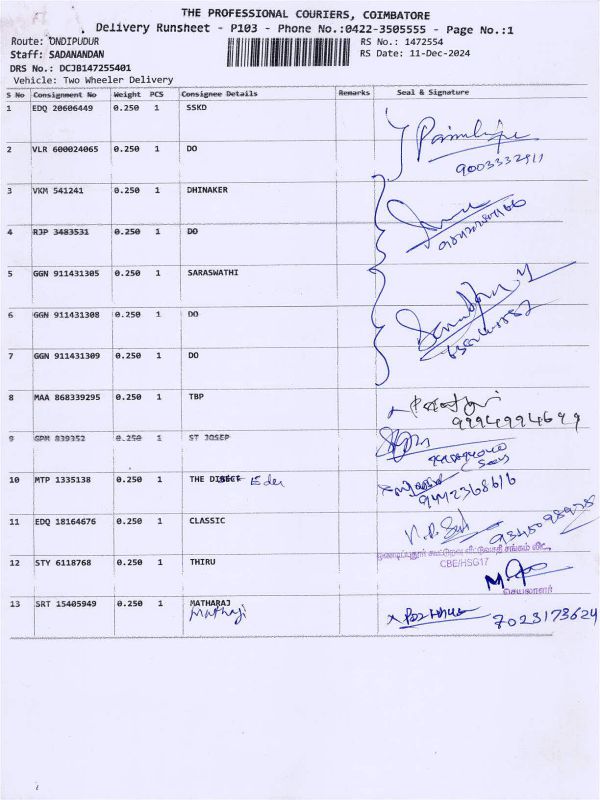 THE PROFESSIONAL COURIERS, COIMBATORE
Delivery Runsheet - P103 - Phone No.:0422-3505555 - Page No.:1
Route: ONDIPUDUR RS No.: 1472554
Staff: SADANANDAN RS Date: 11-Dec-2024
DRS No.: DCJB147255401
Vehicle: Two Wheeler Delivery
S No Consignment No Weight PCS Consignee Details Remarks Seal & Signature
1 EDQ 20606449 0.250 1 SSKD
2 VLR 600024065 0.250 1 DO
9003332911
3 VKM 541241 0.250 1 DHINAKER
4 RJP 3483531 0.250 1 DO
5 GGN 911431305 0.250 1 SARASWATHI
6 GGN 911431308 0.250 1 DO
7 GGN 911431309 0.250 1 DO
8 MAA 868339295 0.250 1 TBP
9994994699
9 GPM 839352 0.250 1 ST JOSEP
10 MTP 1335138 0.250 1 THE
9442368616
11 EDQ 18164676 0.250 1 CLASSIC
CBE/HSG17
12 STY 6118768 0.250 1 THIRU
செயலாளர்
13 SRT 15405949 0.250 1 MATHARAJ
Mathaji
7023173624